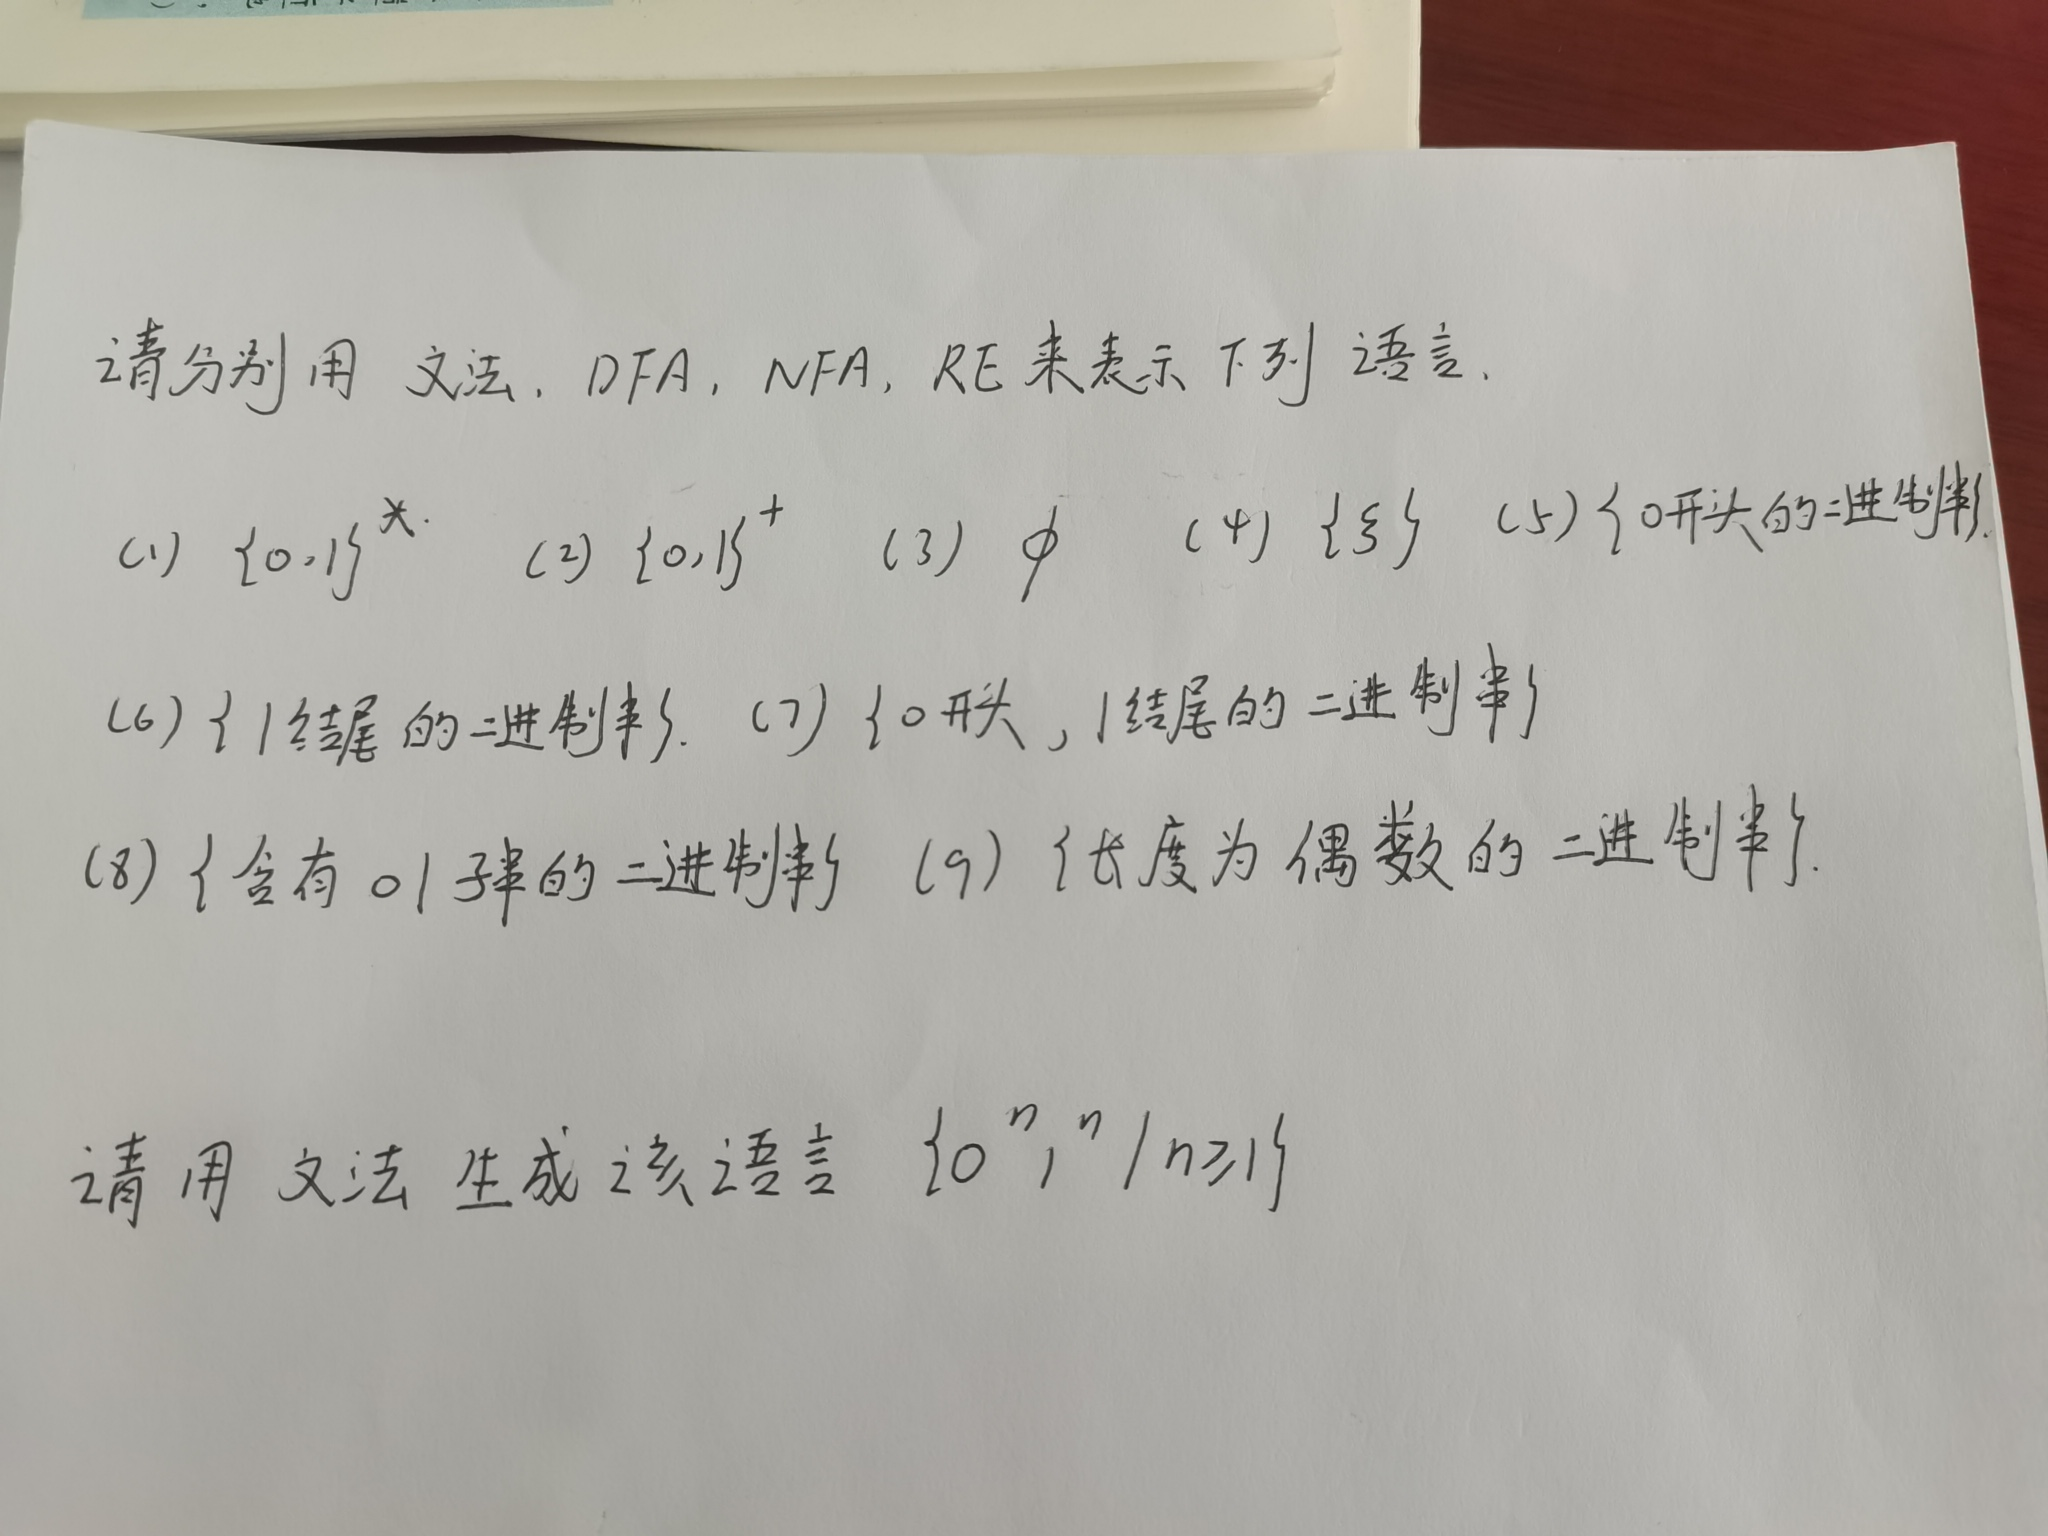 请分别用 文法、DFA, NFA, RE来表示下列 语言.
(1) {0,1}*. (2) {0,1}⁺ (3) ϕ (4) {ε} (5) {0开头的二进制串}.
(6) {1结尾的二进制串}. (7) {0开头,1结尾的二进制串}
(8) {含有01子串的二进制串} (9) {长度为偶数的二进制串}.
请用文法生成该语言 {0ⁿ1ⁿ|n≥1}